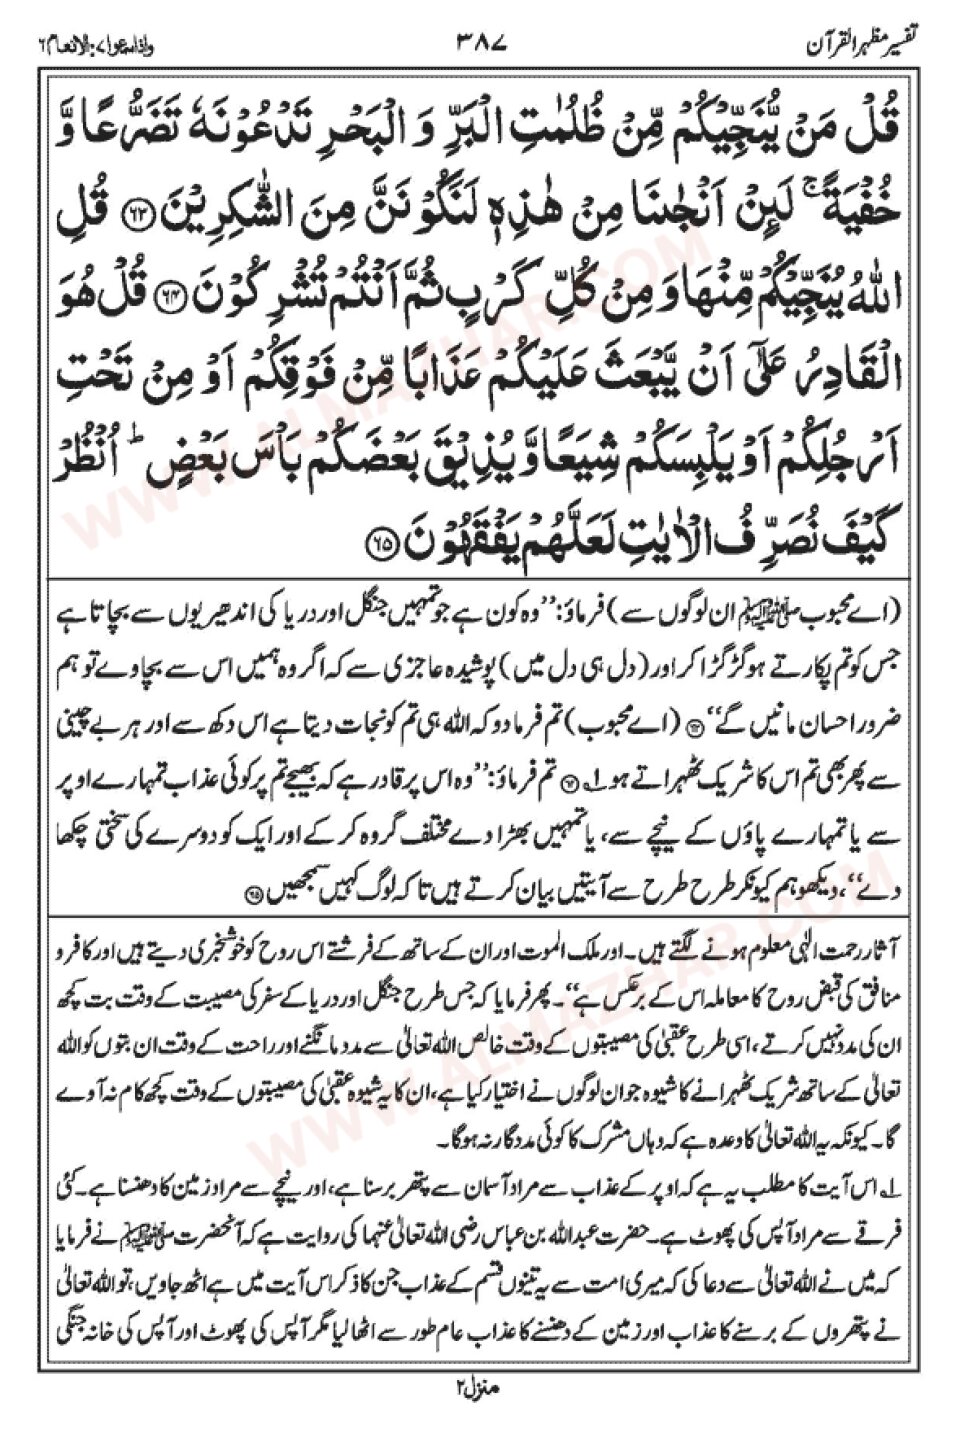 تفسیر مظہر القرآن ۳۸۷ واذاسمعوا۷: الانعام۶
قُلۡ مَنۡ یُّنَجِّیۡکُمۡ مِّنۡ ظُلُمٰتِ الۡبَرِّ وَ الۡبَحۡرِ تَدۡعُوۡنَہٗ تَضَرُّعًا وَّ
خُفۡیَۃً ۚ لَئِنۡ اَنۡجٰىنَا مِنۡ ہٰذِہٖ لَنَکُوۡنَنَّ مِنَ الشّٰکِرِیۡنَ ﴿۶۳﴾ قُلِ
اللّٰہُ یُنَجِّیۡکُمۡ مِّنۡہَا وَ مِنۡ کُلِّ کَرۡبٍ ثُمَّ اَنۡتُمۡ تُشۡرِکُوۡنَ ﴿۶۴﴾ قُلۡ ہُوَ
الۡقَادِرُ عَلٰۤی اَنۡ یَّبۡعَثَ عَلَیۡکُمۡ عَذَابًا مِّنۡ فَوۡقِکُمۡ اَوۡ مِنۡ تَحۡتِ
اَرۡجُلِکُمۡ اَوۡ یَلۡبِسَکُمۡ شِیَعًا وَّ یُذِیۡقَ بَعۡضَکُمۡ بَاۡسَ بَعۡضٍ ؕ اُنۡظُرۡ
کَیۡفَ نُصَرِّفُ الۡاٰیٰتِ لَعَلَّہُمۡ یَفۡقَہُوۡنَ ﴿۶۵﴾
(اے محبوب ﷺ ان لوگوں سے) فرماؤ: ''وہ کون ہے جو تمہیں جنگل اور دریا کی اندھیریوں سے بچاتا ہے
جس کو تم پکارتے ہو گڑگڑا کر اور (دل ہی دل میں) پوشیدہ عاجزی سے کہ اگر وہ ہمیں اس سے بچاوے تو ہم
ضرور احسان مانیں گے'' ﴿۶۳﴾ (اے محبوب) تم فرما دو کہ اللہ ہی تم کو نجات دیتا ہے اس دکھ سے اور ہر بے چینی
سے پھر بھی تم اس کا شریک ٹھہراتے ہو ۱؎ ﴿۶۴﴾ تم فرماؤ: ''وہ اس پر قادر ہے کہ بھیجے تم پر کوئی عذاب تمہارے اوپر
سے یا تمہارے پاؤں کے نیچے سے، یا تمہیں بھڑا دے مختلف گروہ کر کے اور ایک کو دوسرے کی سختی چکھا
دے''، دیکھو ہم کیونکر طرح طرح سے آیتیں بیان کرتے ہیں تاکہ لوگ کہیں سمجھیں ﴿۶۵﴾
آثار رحمت الٰہی معلوم ہونے لگتے ہیں۔ اور ملک الموت اور ان کے ساتھ کے فرشتے اس روح کو خوشخبری دیتے ہیں اور کافر و
منافق کی قبض روح کا معاملہ اس کے برعکس ہے''۔ پھر فرمایا کہ جس طرح جنگل اور دریا کے سفر کی مصیبت کے وقت بت کچھ
ان کی مدد نہیں کرتے، اسی طرح عقبیٰ کی مصیبتوں کے وقت خالص اللہ تعالیٰ سے مدد مانگنے اور راحت کے وقت ان بتوں کو اللہ
تعالیٰ کے ساتھ شریک ٹھہرانے کا شیوہ جو ان لوگوں نے اختیار کیا ہے، ان کا یہ شیوہ عقبیٰ کی مصیبتوں کے وقت کچھ کام نہ آوے
گا۔ کیونکہ یہ اللہ تعالیٰ کا وعدہ ہے کہ وہاں مشرک کا کوئی مددگار نہ ہوگا۔
۱؎ اس آیت کا مطلب یہ ہے کہ اوپر کے عذاب سے مراد آسمان سے پتھر برسنا ہے، اور نیچے سے مراد زمین کا دھنسنا ہے۔ کئی
فرقے سے مراد آپس کی پھوٹ ہے۔ حضرت عبداللہ بن عباس رضی اللہ تعالیٰ عنہما کی روایت ہے کہ آنحضرت ﷺ نے فرمایا
کہ میں نے اللہ تعالیٰ سے دعا کی کہ میری امت سے یہ تینوں قسم کے عذاب جن کا ذکر اس آیت میں ہے اٹھ جاویں، تو اللہ تعالیٰ
نے پتھروں کے برسنے کا عذاب اور زمین کے دھنسنے کا عذاب عام طور سے اٹھا لیا مگر آپس کی پھوٹ اور آپس کی خانہ جنگی
منزل۲
WWW.ALMAZHAR.COM
WWW.ALMAZHAR.COM